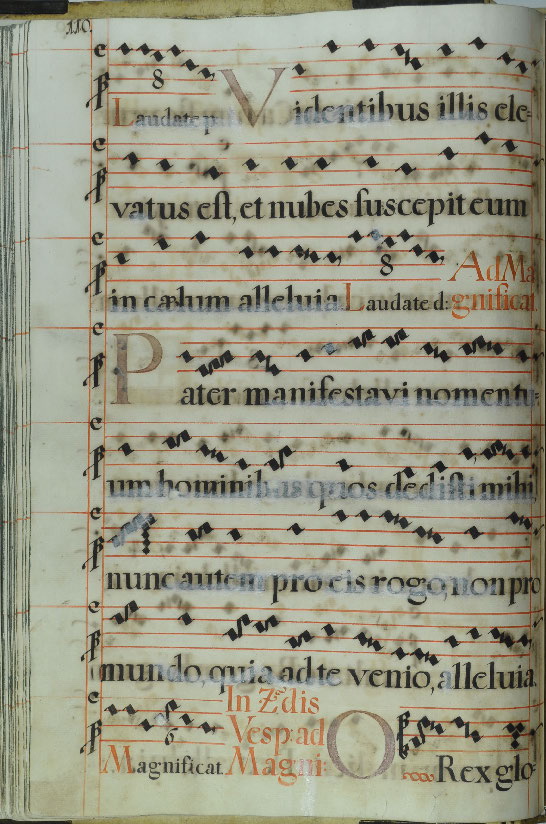 110.
8
Laudate p. Videntibus illis ele-
vatus est, et nubes suscepit eum
8
in cælum alleluia. Laudate d: Ad Magnificat
Pater manifestavi nomen tu-
um hominibus quos dedisti mihi,
nunc autem pro eis rogo, non pro
mundo, quia ad te venio, alleluia.
6
Magnificat. In 2.dis Vesp: ad Magni: O Rex glo-